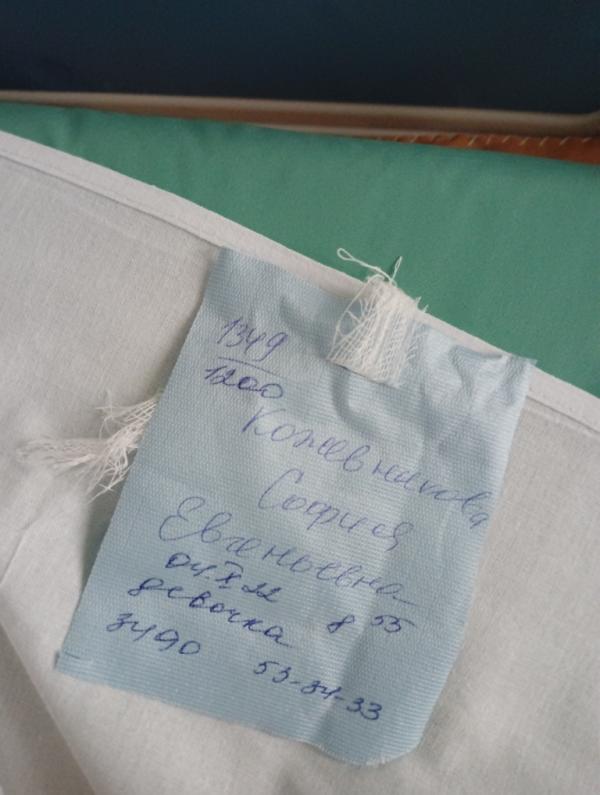 1349
1200
Кожевникова
София
Евгеньевна
04.X 22 8 55
девочка
3490 53-34-33